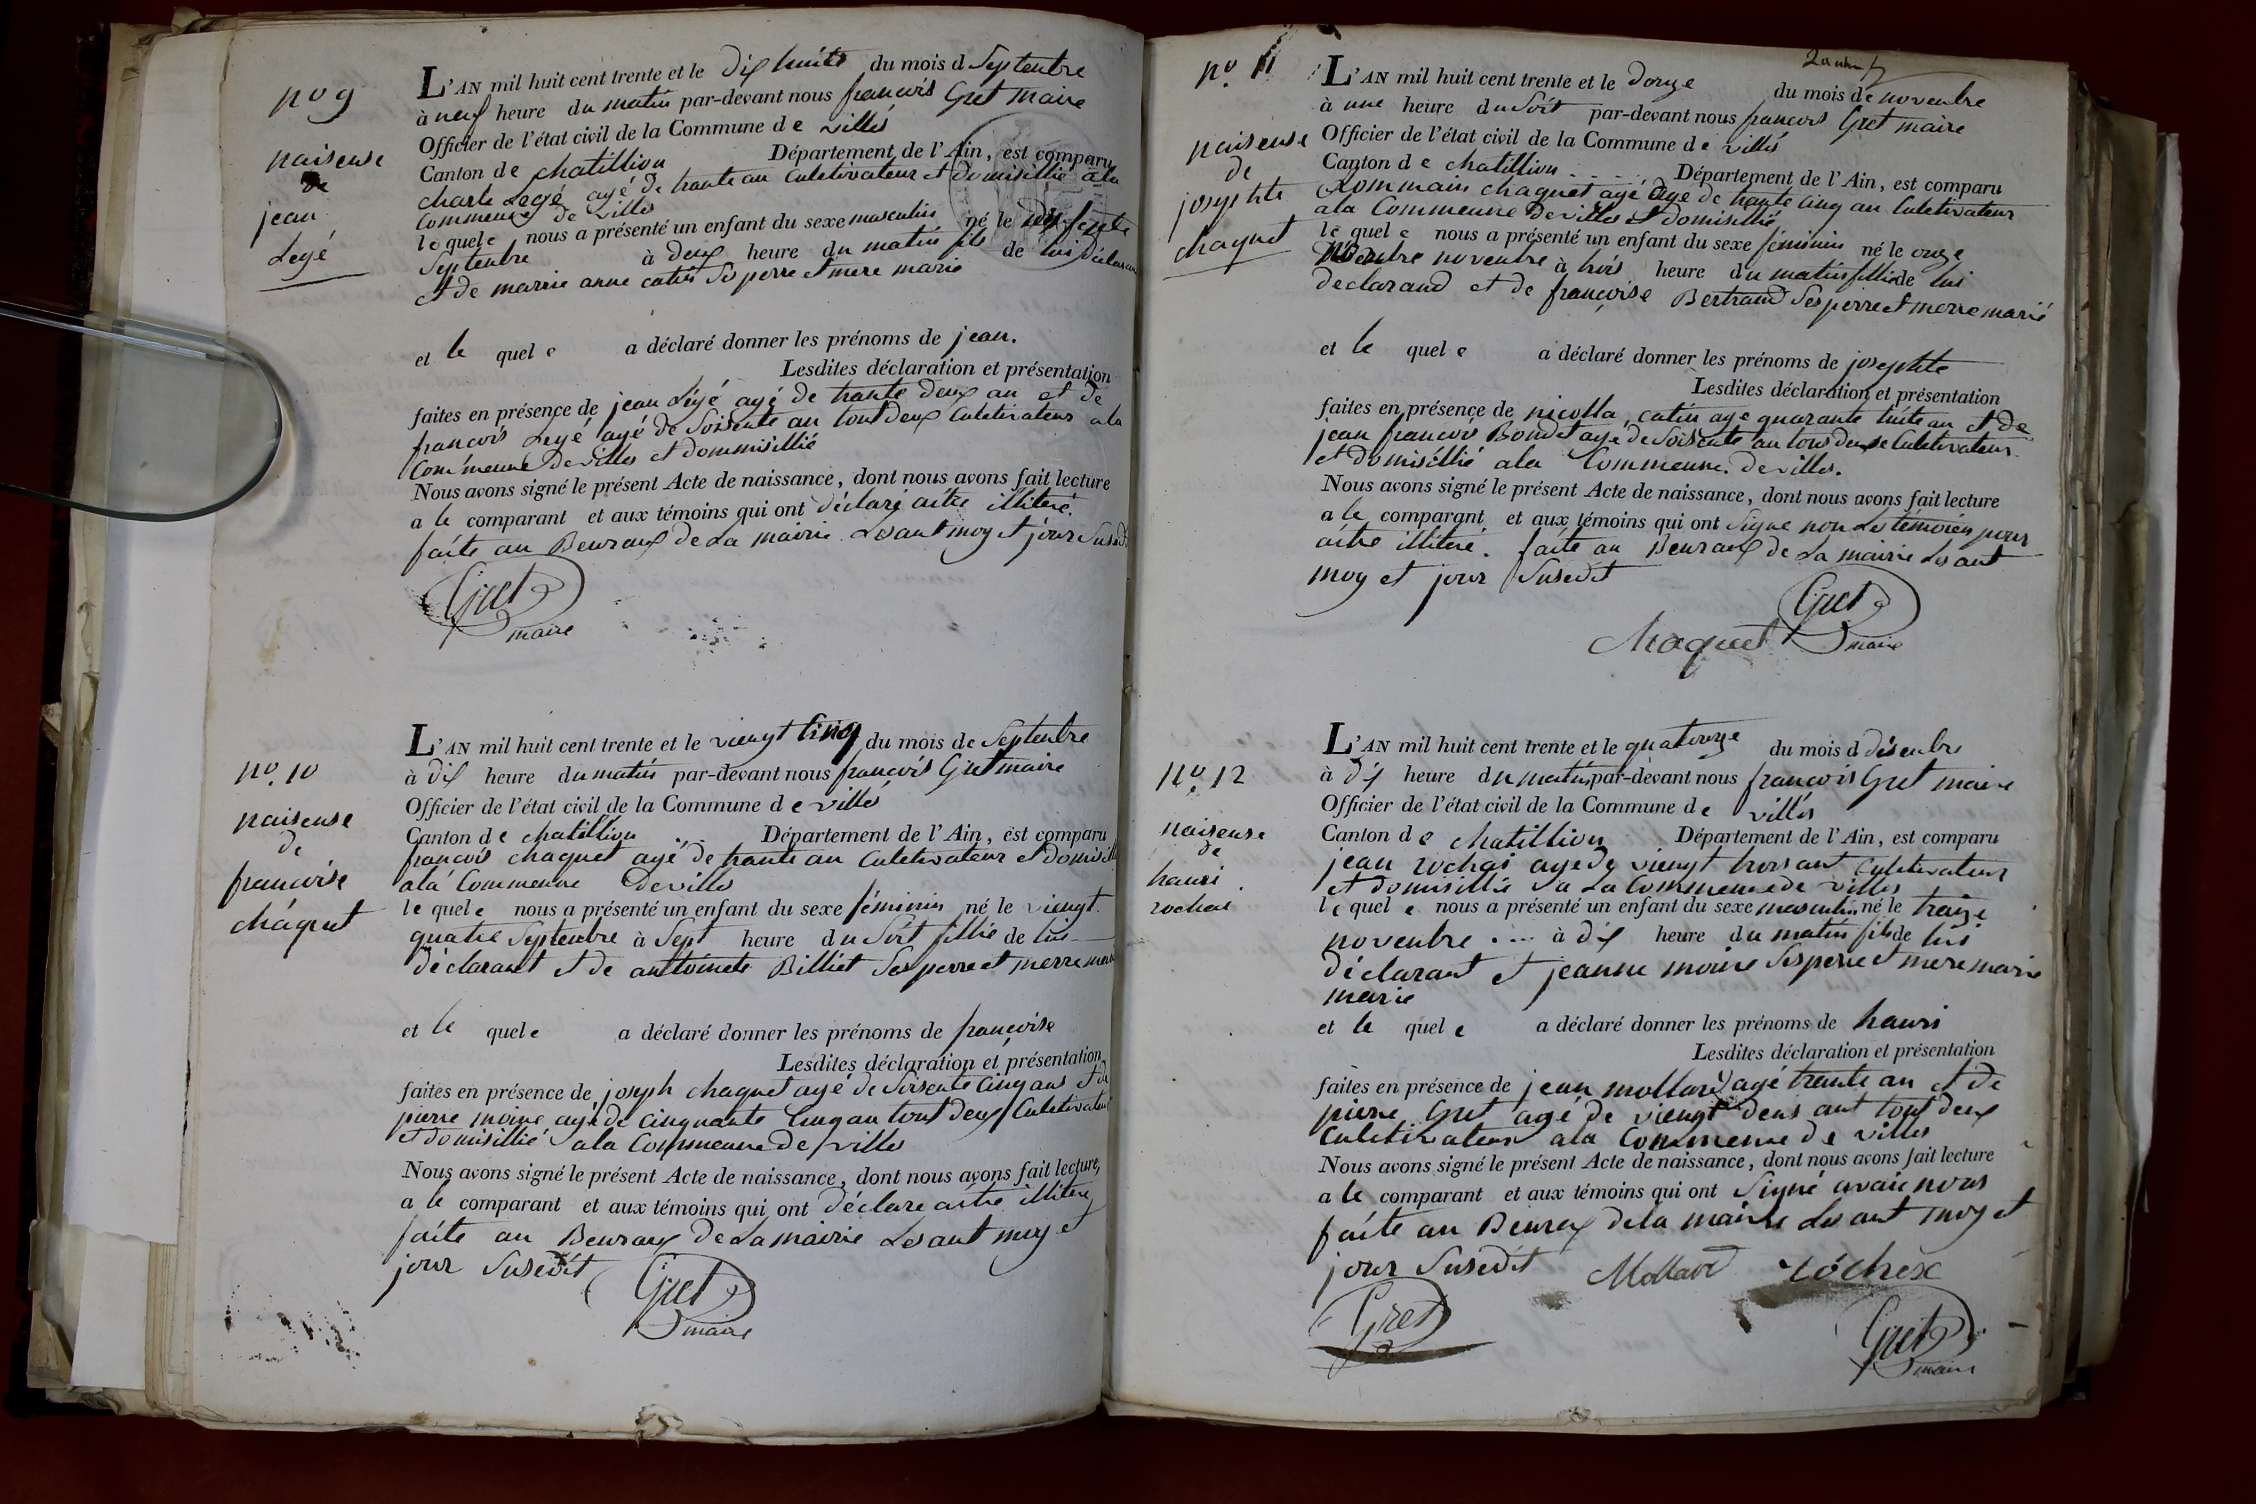 no 9
naisense
de
jean
Legé
L'AN mil huit cent trente et le dix huite du mois d Septenbre
à neuf heure du matin par-devant nous francois Gret maire
Officier de l'état civil de la Commune de villes
Canton de chatillion Département de l'Ain, est comparu
charle Legé agé de trante an Culetivateur et domisillié ala
Commeune de villes
le quele nous a présenté un enfant du sexe masculin né le
Septenbre à deux heure du matin fils de lui déclarant
et de marrie anne catin Ses perre et mere marie
et le quel e a déclaré donner les prénoms de jean.
Lesdites déclaration et présentation
faites en présence de jean Legé agé de trante deux an et de
francois Legé agé de Soisente an tout deux Culetivateur ala
Commeune de villes et dommisillié
Nous avons signé le présent Acte de naissance, dont nous avons fait lecture
a le comparant et aux témoins qui ont déclaré aitre illiteré.
faite au Beuraux de La mairie Les ant moy et jour Susedit
Gret
maire
no. 10
naisense
de
francoise
chaquet
L'AN mil huit cent trente et le viengt cinq du mois de Septenbre
à dix heure du matin par-devant nous francois Gret maire
Officier de l'état civil de la Commune de villes
Canton de chatillion Département de l'Ain, est comparu
francois chaquet agé de trante an Culetivateur et domisillié
ala Commeune de villes
le quele nous a présenté un enfant du sexe féminin né le viengt
quatre Septenbre à Sept heure du Soit fillie de lui
déclarant et de antoinete Billiet Ses perre et merre marie
et le quele a déclaré donner les prénoms de francoise
Lesdites déclaration et présentation
faites en présence de joseph chaquet agé de Soisente Cinq ans et de
pierre moine agé de Cinquante Cinq an tout deux Culetivateur
et domisillié ala Commeune de villes
Nous avons signé le présent Acte de naissance, dont nous avons fait lecture,
a le comparant et aux témoins qui ont déclare aitre illiteré
faite au Beuraux de La mairie Les ant moy et
jour Susedit
Gret
maire
no. 11
naisense
de
josephte
chaquet
L'AN mil huit cent trente et le douze du mois de novenbre
à une heure du Soit par-devant nous francois Gret maire
Officier de l'état civil de la Commune de villes
Canton de chatillion Département de l'Ain, est comparu
Rommain chaquet agé agé de trante cinq an Culetivateur
ala Commeune de villes et domisillié
le quel e nous a présenté un enfant du sexe féminin né le onze
novenbre à trois heure du matin fillie de lui
declarand et de francoise Bertrand Ses perre et merre marié
et le quel e a déclaré donner les prénoms de josephte
Lesdites déclaration et présentation
faites en présence de nicolla catin age quarante huite an et de
jean francois Bondet agé de Soisente an tous deuxe Culetivateur
et domisillié ala Commeune de villes.
Nous avons signé le présent Acte de naissance, dont nous avons fait lecture
a le comparant et aux témoins qui ont Signe non Les témoien pour
aitre illiteré. faite au Beuraux de La mairie Les ant
moy et jour Susedit
Gret
Chaquet maire
no. 12
naisense
de
hanri
rochai
L'AN mil huit cent trente et le quatorze du mois d disenbre
à dix heure du matin par-devant nous francois Gret maire
Officier de l'état civil de la Commune de villes
Canton de chatillion Département de l'Ain, est comparu
jean rochai age de viengt trois ant Culetivateur
et domisillié a La Commeune de villes
le quel e nous a présenté un enfant du sexe masculin né le traize
novenbre à dix heure du matin fils de lui
déclarant et jeanne moine Ses perre et mere marie
marie
et le quel e a déclaré donner les prénoms de hanri
Lesdites déclaration et présentation
faites en présence de jean mollard agé trante an et de
pierre Gret agé de viengt deus ant tout deux
Culetivateur ala Commeune de villes
Nous avons signé le présent Acte de naissance, dont nous avons fait lecture
a le comparant et aux témoins qui ont Signé avaie nous
faite au Beuraux de la mairie Les ant moy et
jour Susedit Mollard rochex
Gret
Gret
maire